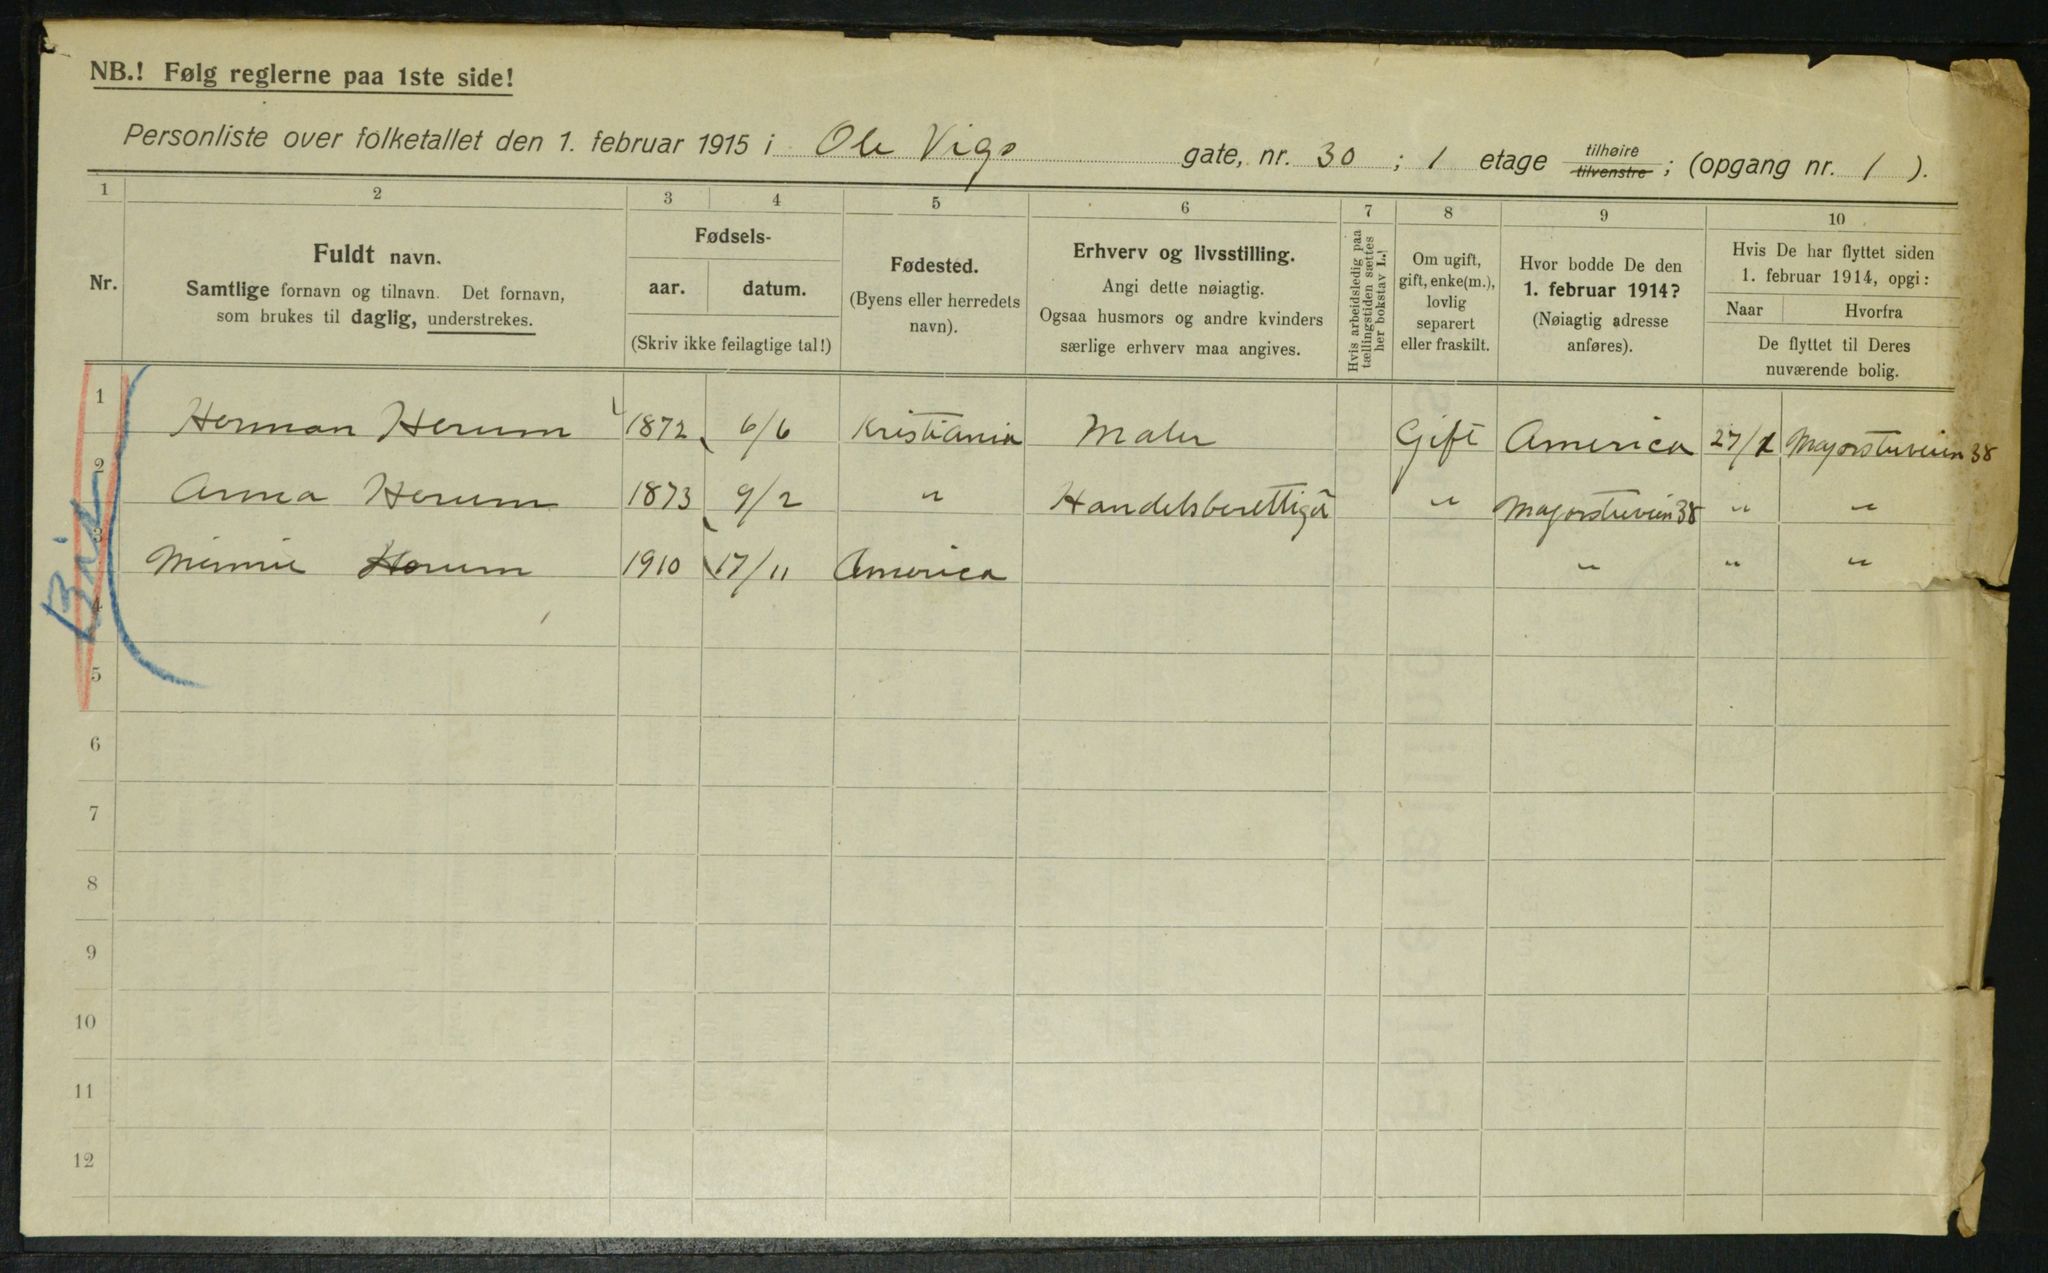 NB.! Følg reglerne paa 1ste side!
Personliste over folketallet den 1. februar 1915 i Ole Vigs gate, nr. 30 ; 1 etage tilhøire tilvenstre ; (opgang nr. 1 ).
1 2 3 4 5 6 7 8 9 10
Nr.
Fuldt navn.
Samtlige fornavn og tilnavn. Det fornavn,
som brukes til daglig, understrekes.
Fødsels-
aar. datum.
(Skriv ikke feilagtige tal!)
Fødested.
(Byens eller herredets
navn).
Erhverv og livsstilling.
Angi dette nøiagtig.
Ogsaa husmors og andre kvinders
særlige erhverv maa angives.
Hvis arbeidsledig paa
tællingstiden sættes
her bokstav L.!
Om ugift,
gift, enke(m.),
lovlig
separert
eller fraskilt.
Hvor bodde De den
1. februar 1914?
(Nøiagtig adresse
anføres).
Hvis De har flyttet siden
1. februar 1914, opgi:
Naar Hvorfra
De flyttet til Deres
nuværende bolig.
1 Herman Herum 1872 6/6 Kristiania Maler Gift America 27/1 Majorstuveien 38
2 Anna Herum 1873 9/2 " Handelsberettiget " Majorstuveien 38 " "
3 Minnie Herum 1910 17/11 America " " "
4
5
6
7
8
9
10
11
12